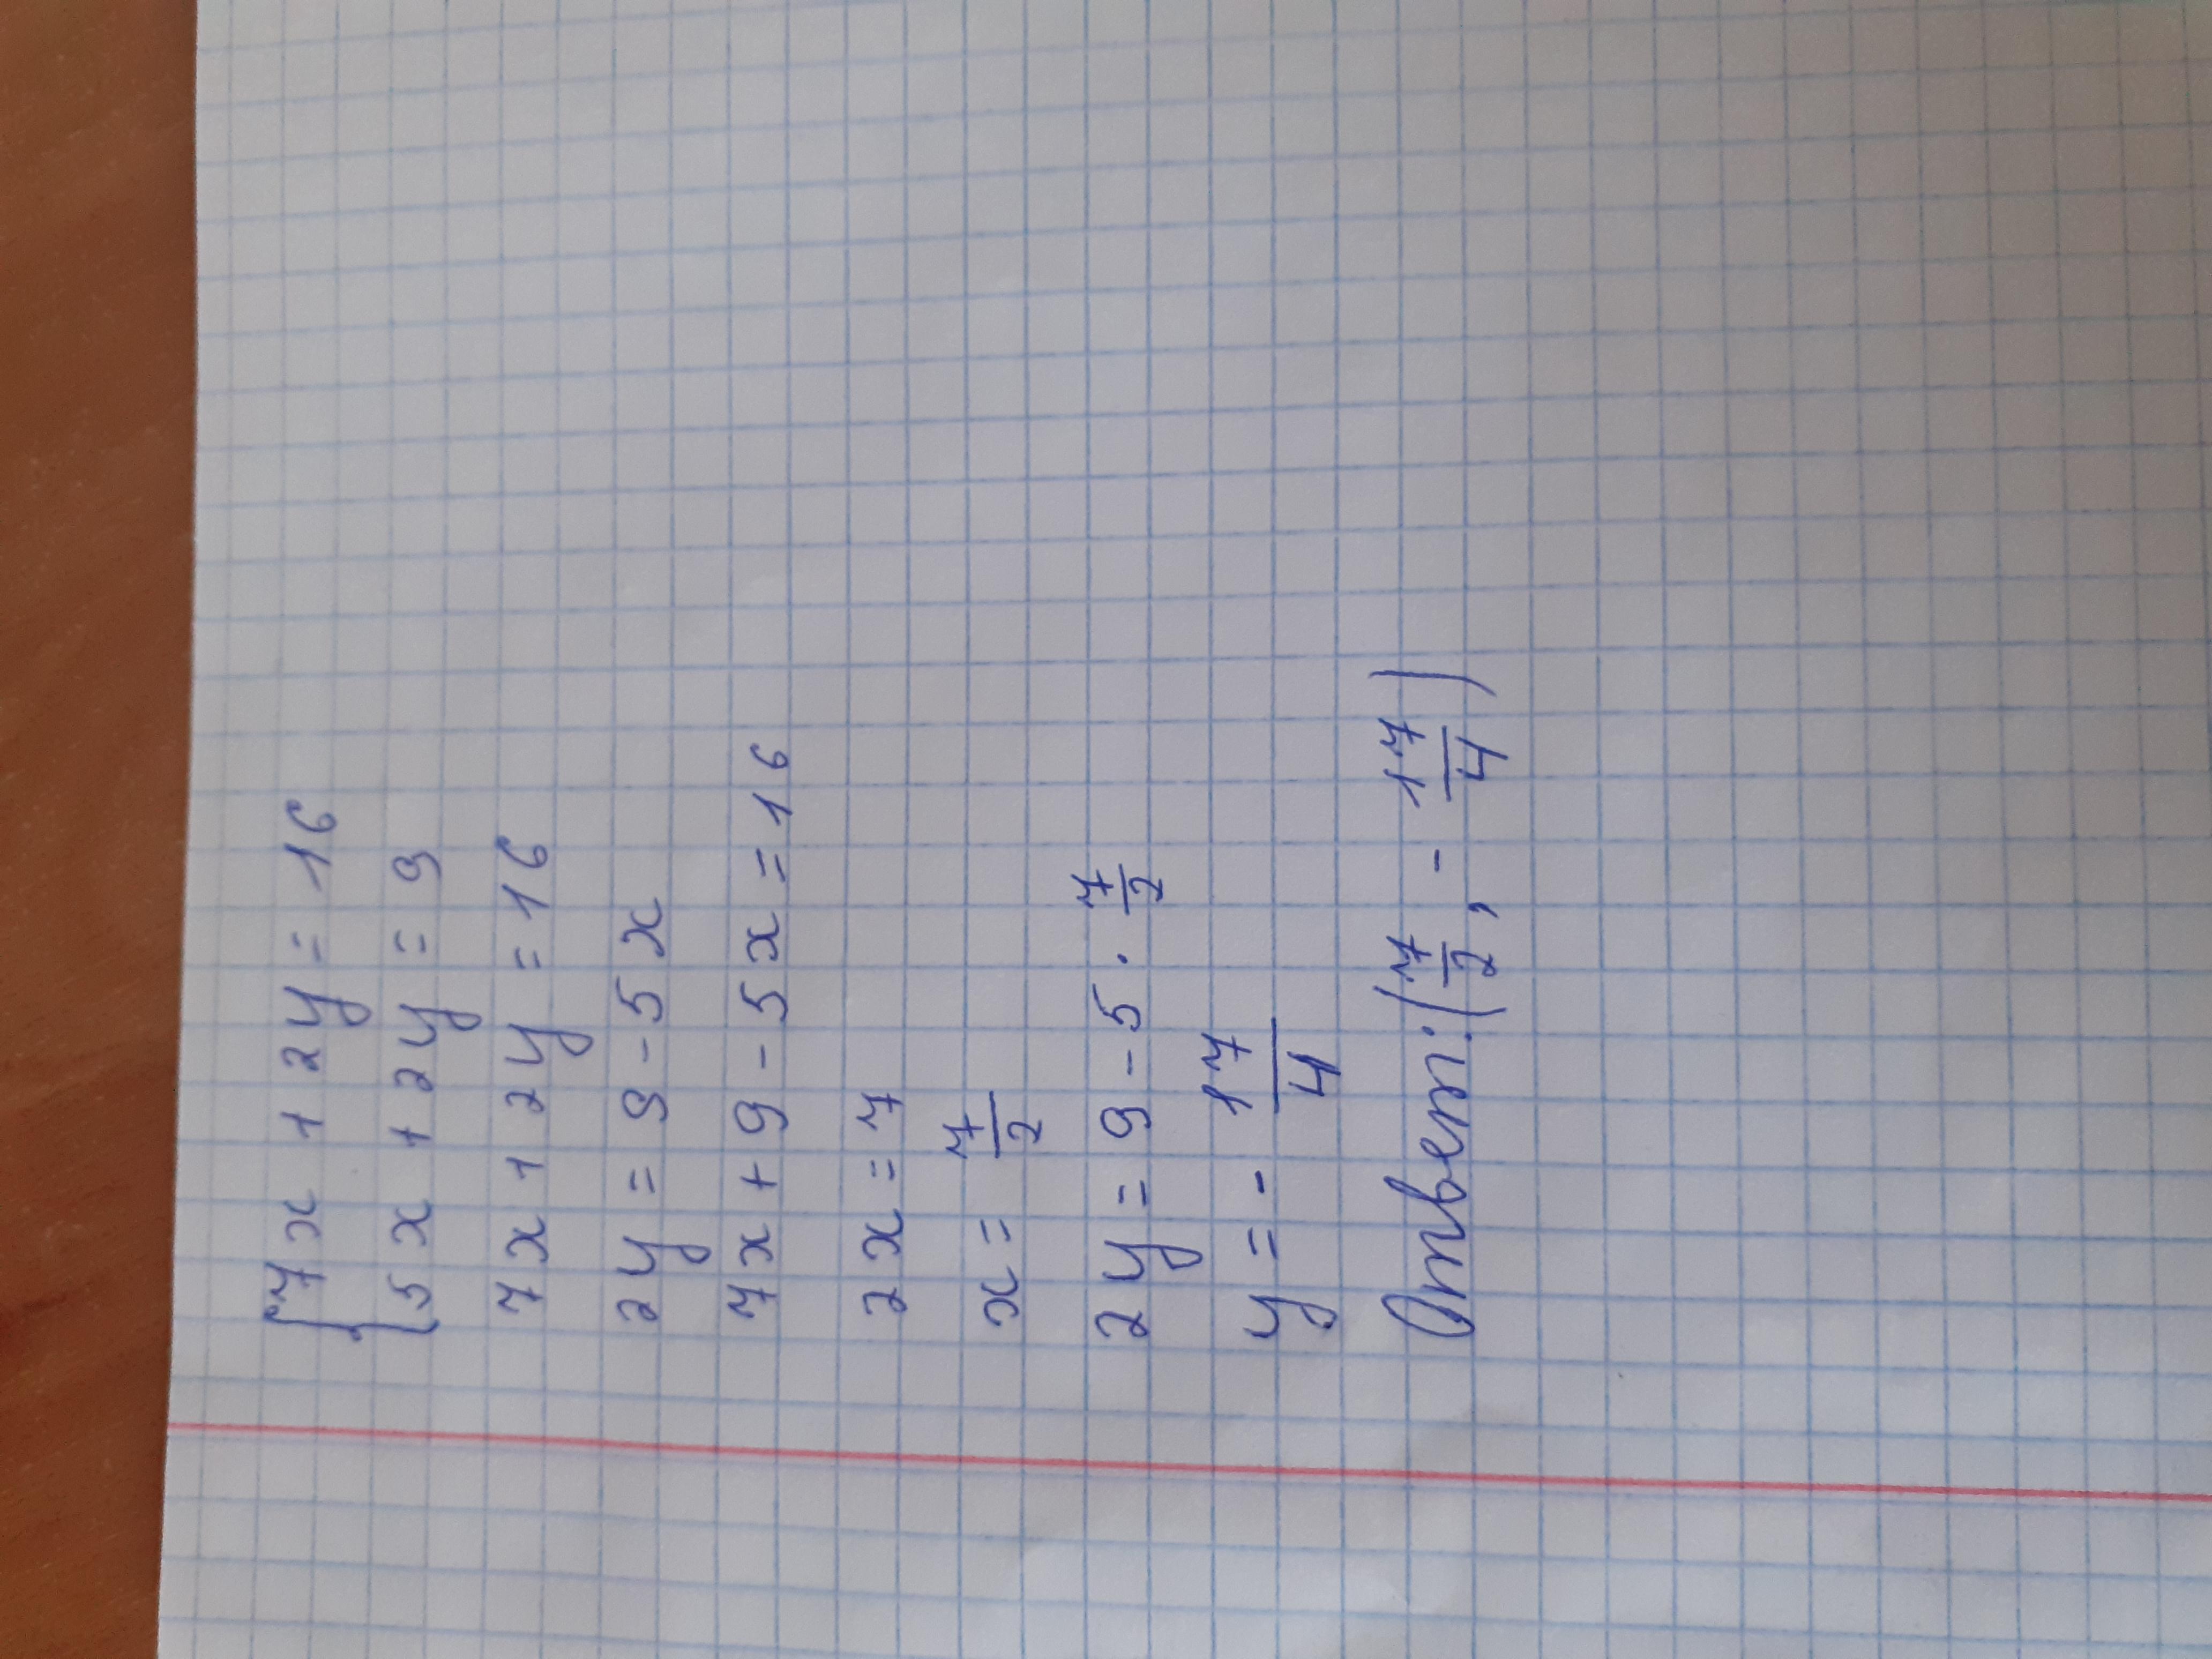 {7x + 2y = 16
{5x + 2y = 9
7x + 2y = 16
2y = 9 - 5x
7x + 9 - 5x = 16
2x = 7
x = 7/2
2y = 9 - 5 · 7/2
y = - 17/4
Ответ: (7/2, - 17/4)